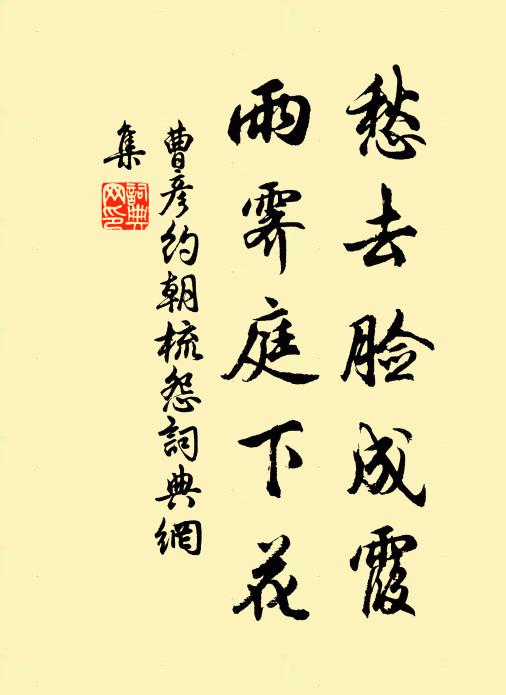 愁去脸成霞
雨霁庭下花
曹彦约朝梳怨詞典網
集
詞典网印